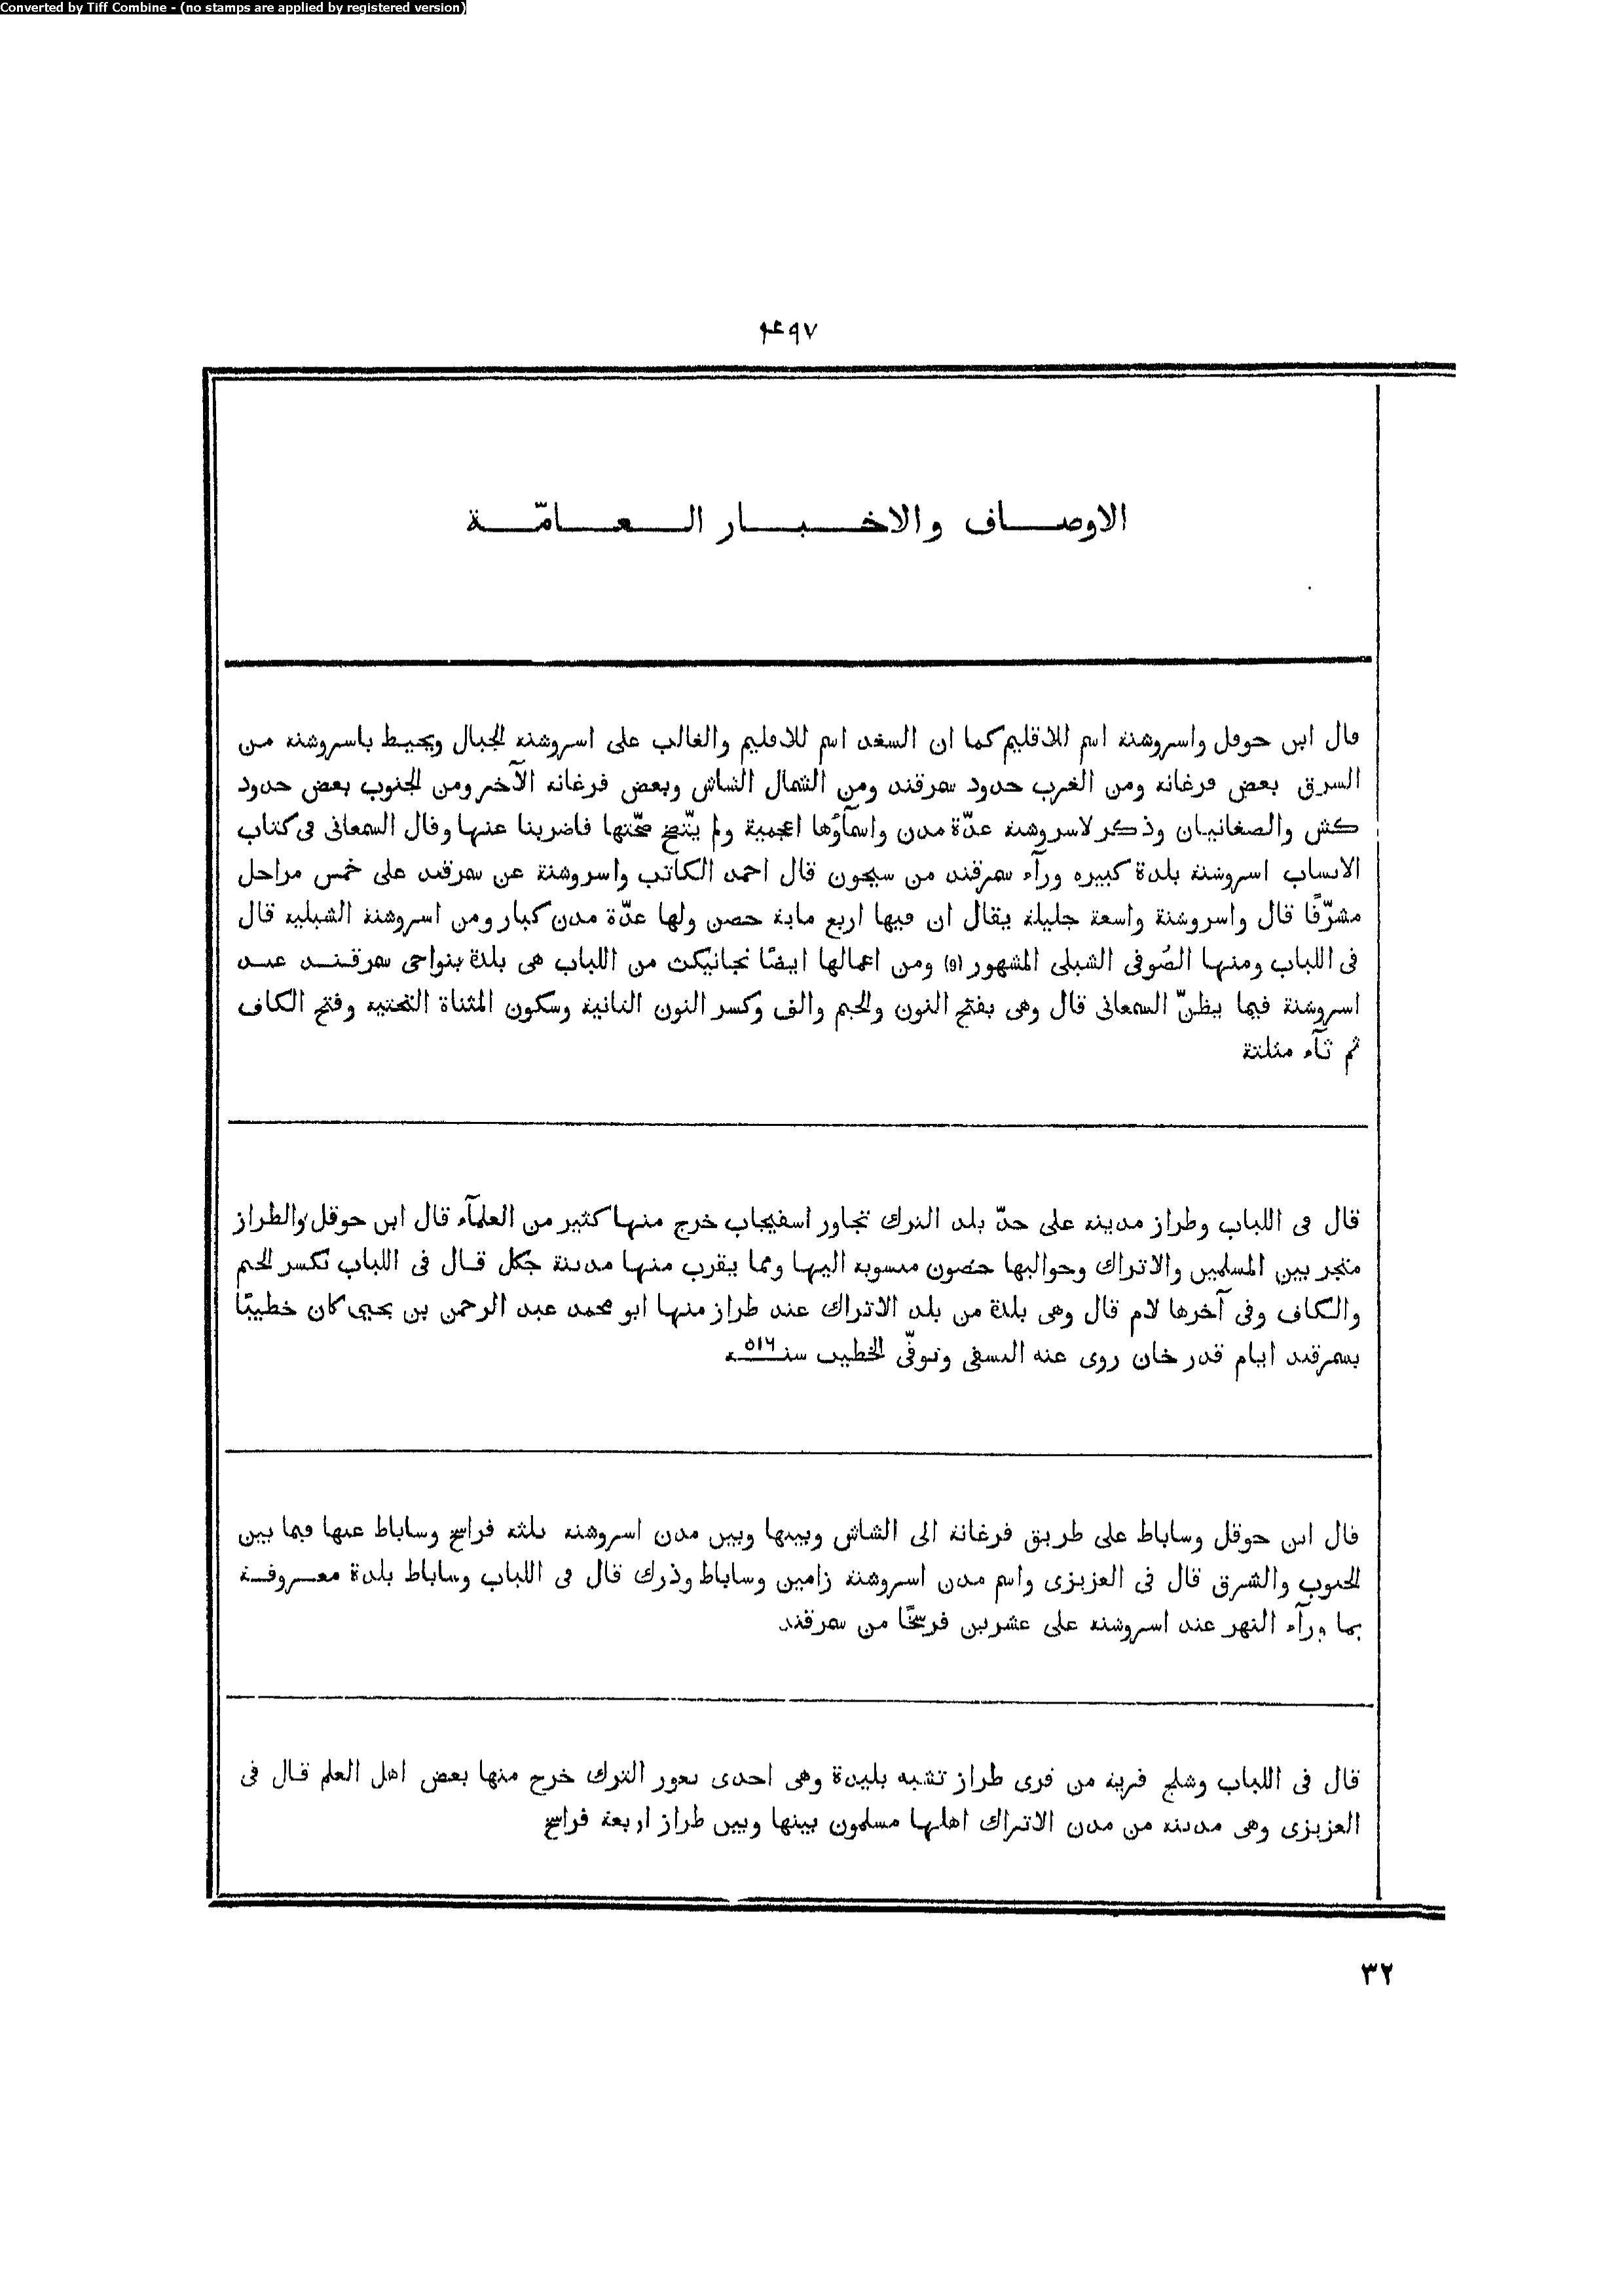 Converted by Tiff Combine - (no stamps are applied by registered version)
۴۹۷
الاوصاف والاخبار العامّة
قال ابن حوقل واسروشنه اسم للاقليم كما ان السغد اسم للاقليم والغالب على اسروشنه الجبال ويحيط باسروشنه من
الشرق بعض فرغانه ومن الغرب حدود سمرقند ومن الشمال الشاش وبعض فرغانه الآخر ومن الجنوب بعض حدود
كش والصغانيان وذكر لاسروشنة عدّة مدن واسمآؤها اعجمية ولم يتّضح صحّتها فاضربنا عنها وقال السمعانى فى كتاب
الانساب اسروشنة بلدة كبيره ورآء سمرقند من سيحون قال احمد الكاتب واسروشنة عن سمرقند على خمس مراحل
مشرّقًا قال واسروشنة واسعة جليلة يقال ان فيها اربع ماية حصن ولها عدّة مدن كبار ومن اسروشنة الشبليه قال
فى اللباب ومنها الصّوفى الشبلى المشهور (9) ومن اعمالها ايضًا نجانيكث من اللباب هى بلدة بنواحى سمرقند عند
اسروشنة فيما يظنّ السمعانى قال وهى بفتح النون والجيم والف وكسر النون الثانية وسكون المثناة التحتيه وفتح الكاف
ثم ثآء مثلثة
قال فى اللباب وطراز مدينه على حدّ بلد الترك تجاور اسفيجاب خرج منها كثير من العلمآء قال ابن حوقل والطراز
متجر بين المسلمين والاتراك وحواليها حصون منسوبه اليها ومما يقرب منها مدينة جكل قال فى اللباب بكسر الجيم
والكاف وفى آخرها لام قال وهى بلدة من بلد الاتراك عند طراز منها ابو محمد عبد الرحمن بن يحيى كان خطيبًا
بسمرقند ايام قدر خان روى عنه النسفى وتوفّى الخطيب سنه ٥١٦
قال ابن حوقل وساباط على طريق فرغانة الى الشاش وبينها وبين مدن اسروشنه ثلثه فراسخ وساباط عنها فيما بين
الجنوب والشرق قال فى العزيزى واسم مدن اسروشنة زامين وساباط وذرك قال فى اللباب وساباط بلدة معروفة
بما ورآء النهر عند اسروشنه على عشرين فرسخًا من سمرقند
قال فى اللباب وشلج قرية من قرى طراز تشبه بليدة وهى احدى ثغور الترك خرج منها بعض اهل العلم قال فى
العزيزى وهى مدينه من مدن الاتراك اهلها مسلمون بينها وبين طراز اربعة فراسخ
٣٢